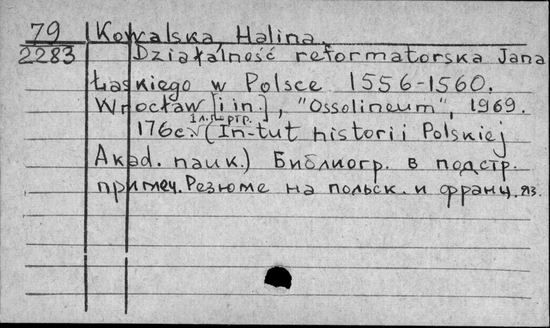 79 Kowalska Halina.
2283 Działalność reformatorska Jana
Łaskiego w Polsce 1556-1560.
Wrocław [i in.], "Ossolineum", 1969.
1 л. портр.
176с. (In-tut historii Polskiej
Akad. nauk.) Библиогр. в подстр.
примеч. Резюме на польск. и франц. яз.